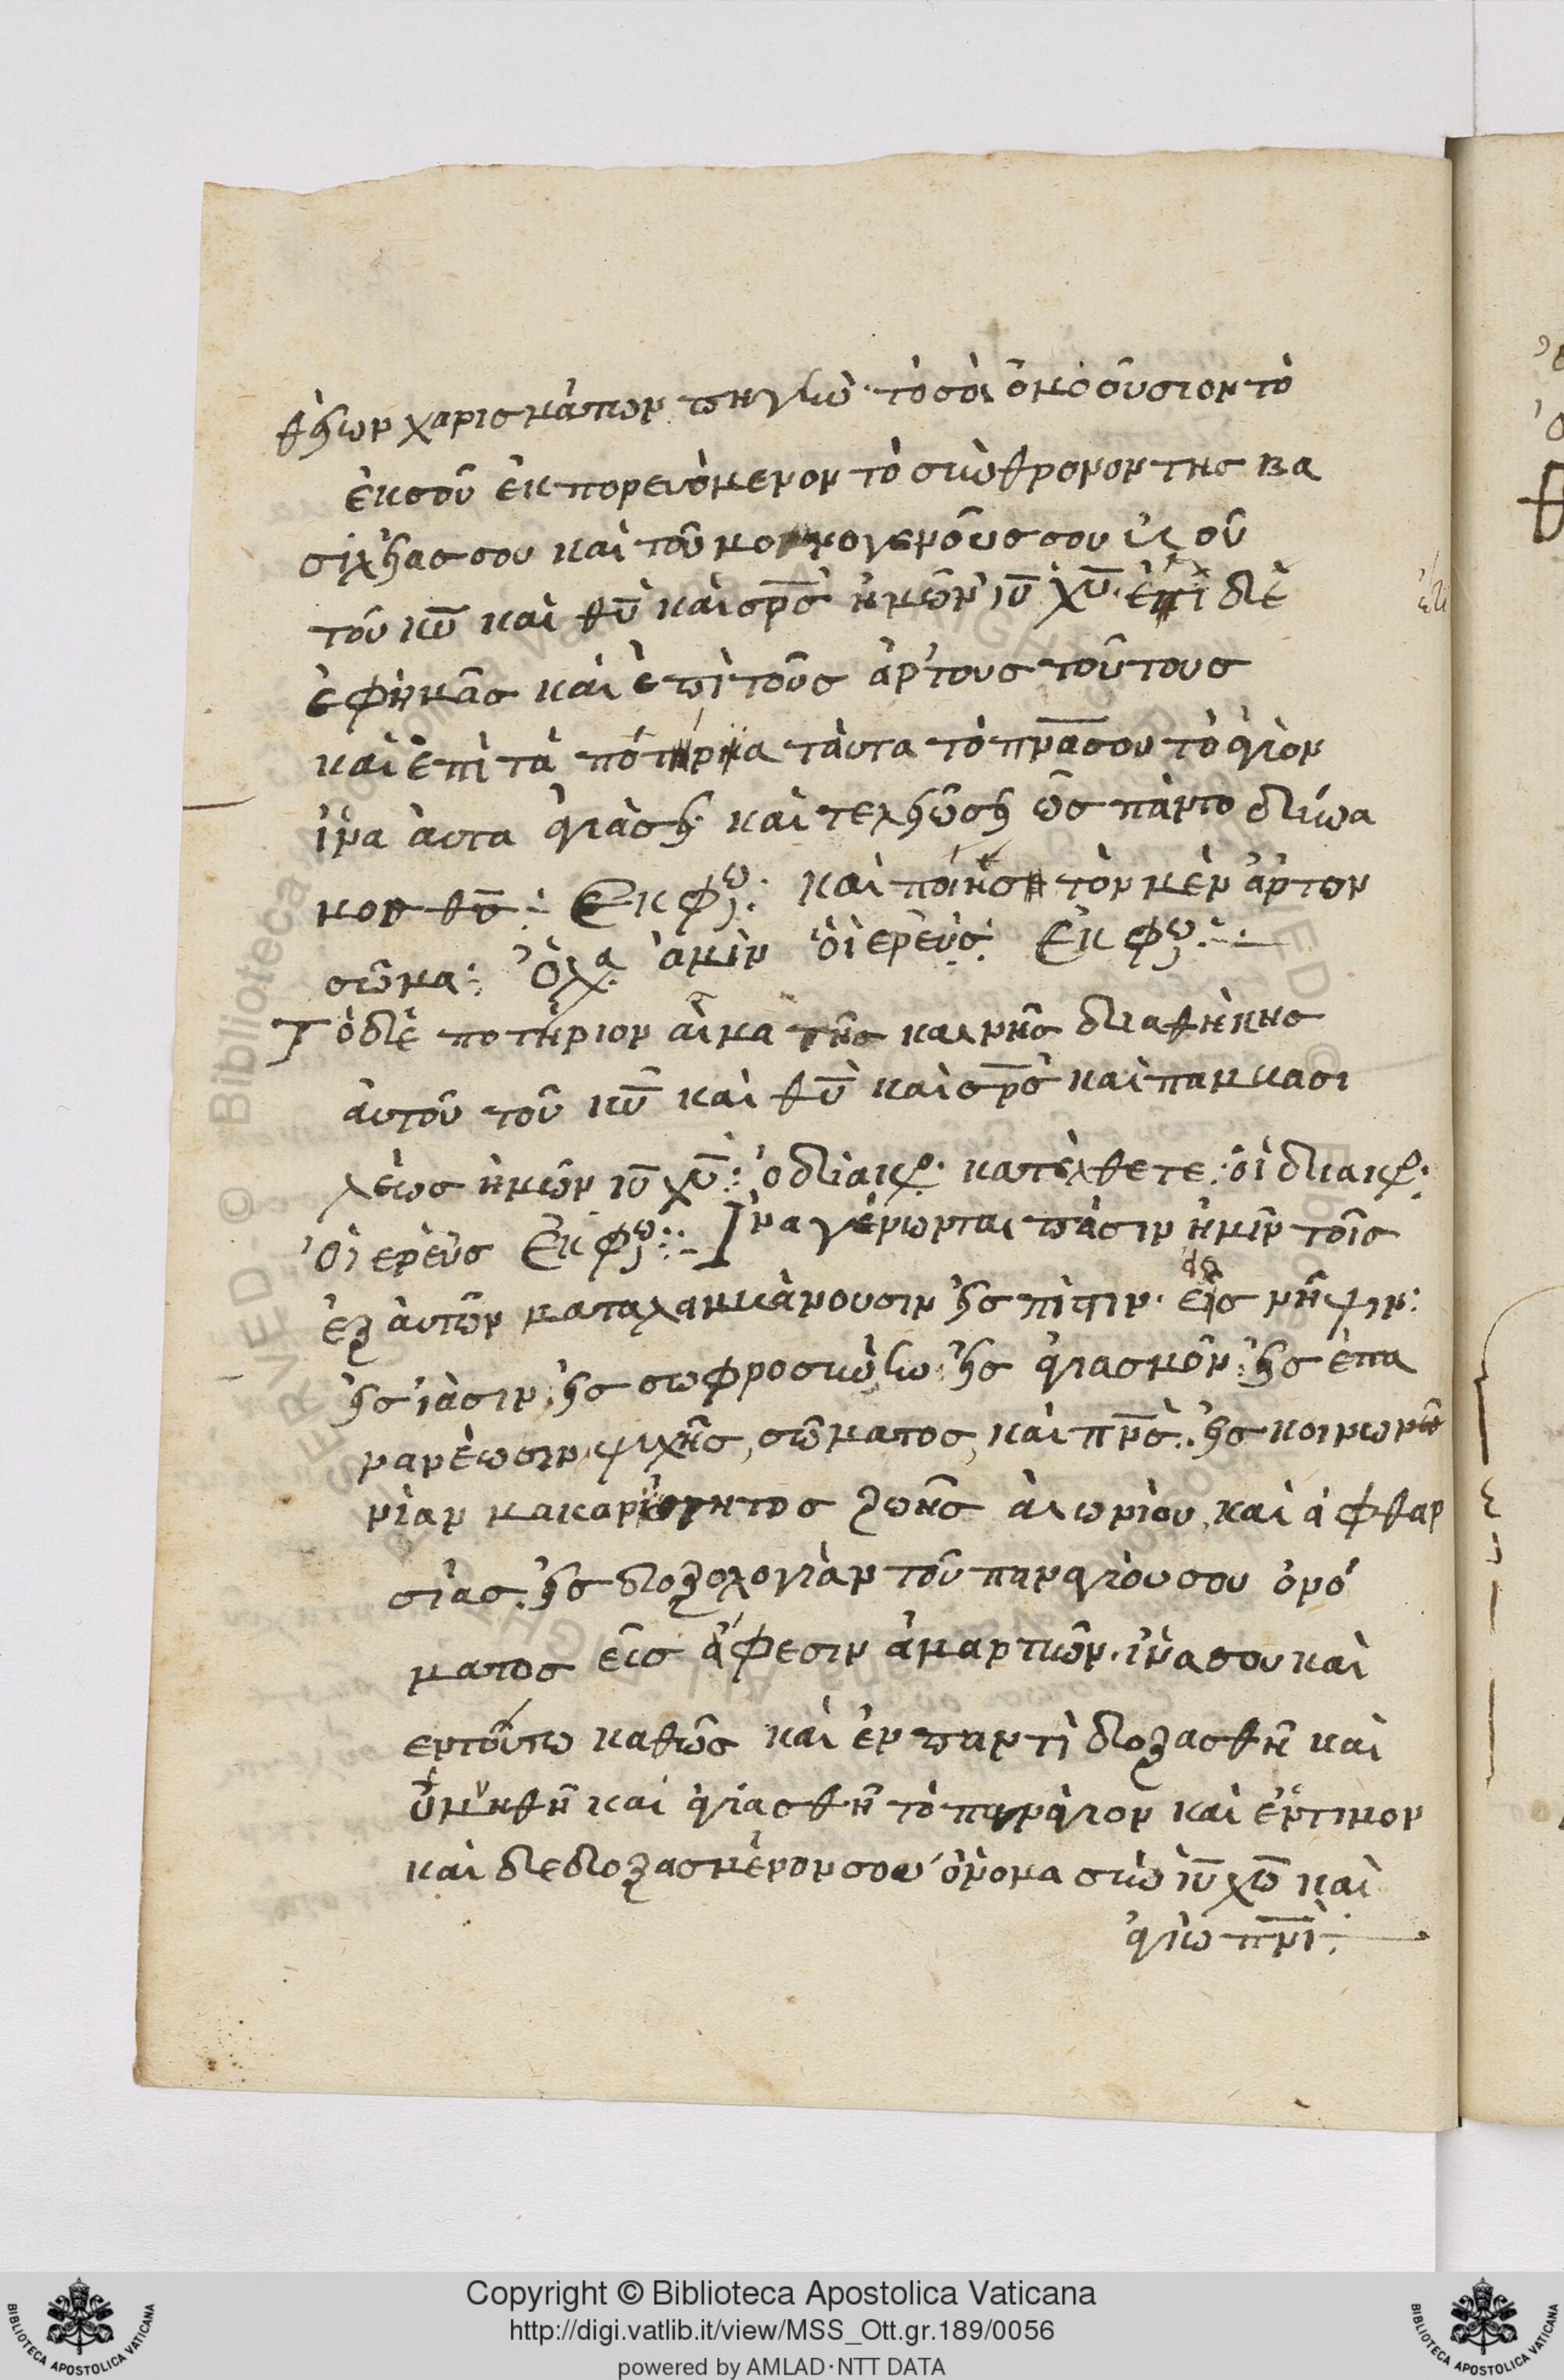 θείων χαρισμάτων πηγὴν· τὸ σοὶ ὁμοούσιον τὸ
ἐκ σοῦ ἐκπορευόμενον τὸ σύνθρονον της βα
σιλείας σου καὶ τοῦ μονογενοῦς σου υἱοῦ
τοῦ κ̅υ̅ καὶ θ̅υ̅ καὶ σ̅ρ̅ς̅ ἡμῶν ι̅υ̅ χ̅υ̅· ἔπιδε
ἐφημᾶς καὶ ἐπὶ τοῦς ἄρτους τοῦτους
καὶ ἐπὶ τὰ ποτήρια τάυτα τὸ π̅ν̅α̅ σου τὸ ἅγιον
ἵνα ἀυτα ἁγιάσει καὶ τελειώσει ὡς παντοδύνα
μος θ̅ς̅: Εκφω: καὶ ποιήση τὸν μὲν ἄρτον
σῶμα: Ὁ λα ἀμὶν ὁ ἱερεὺς: Ἐκφω:
Τὸ δὲ ποτήριον αἷμα τῆς καινῆς διαθήκης
ἀυτοῦ τοῦ κ̅υ̅ καὶ θ̅υ̅ καὶ σ̅ρ̅ς̅ καὶ παμβασι
λέως ἡμῶν ι̅υ̅ χ̅υ̅: ὁ διακο κατέλθετε: ὁἱ διακο
Ὁ ἱερεὺς Εκφω: Ἵνα γένωνται πᾶσιν ἡμῖν τοῖς
ἐξ ἀυτῶν μεταλαμβάνουσιν εἰς πίστιν· εἰς νῆψιν:
εἰς ἴασιν· εἰς σωφροσύνην· εἰς ἁγιασμὸν: εἰς ἐπα
νανέωσιν ψυχῆς, σώματος, καὶ π̅ν̅ς̅: εἰς κοινων
νίαν μακαριότητος ζωῆς ἀιωνίου, καὶ ἀφθαρ
σίας· εἰς δοξολογίαν τοῦ παναγίου σου ὀνό
ματος εἰς ἄφεσιν ἁμαρτιῶν· ἵνα σου καὶ
εντούτω καθῶς καὶ ἐν παντὶ δοξασθῆ καὶ
ὑμνηθῆ καὶ ἁγιασθῆ τὸ πανάγιον καὶ ἔντιμον
καὶ δεδοξασμένον σου ὄνομα σὺν ι̅υ̅ χ̅ω̅ καὶ
ἁγίω π̅ν̅ι̅:
Copyright © Biblioteca Apostolica Vaticana
http://digi.vatlib.it/view/MSS_Ott.gr.189/0056
powered by AMLAD·NTT DATA